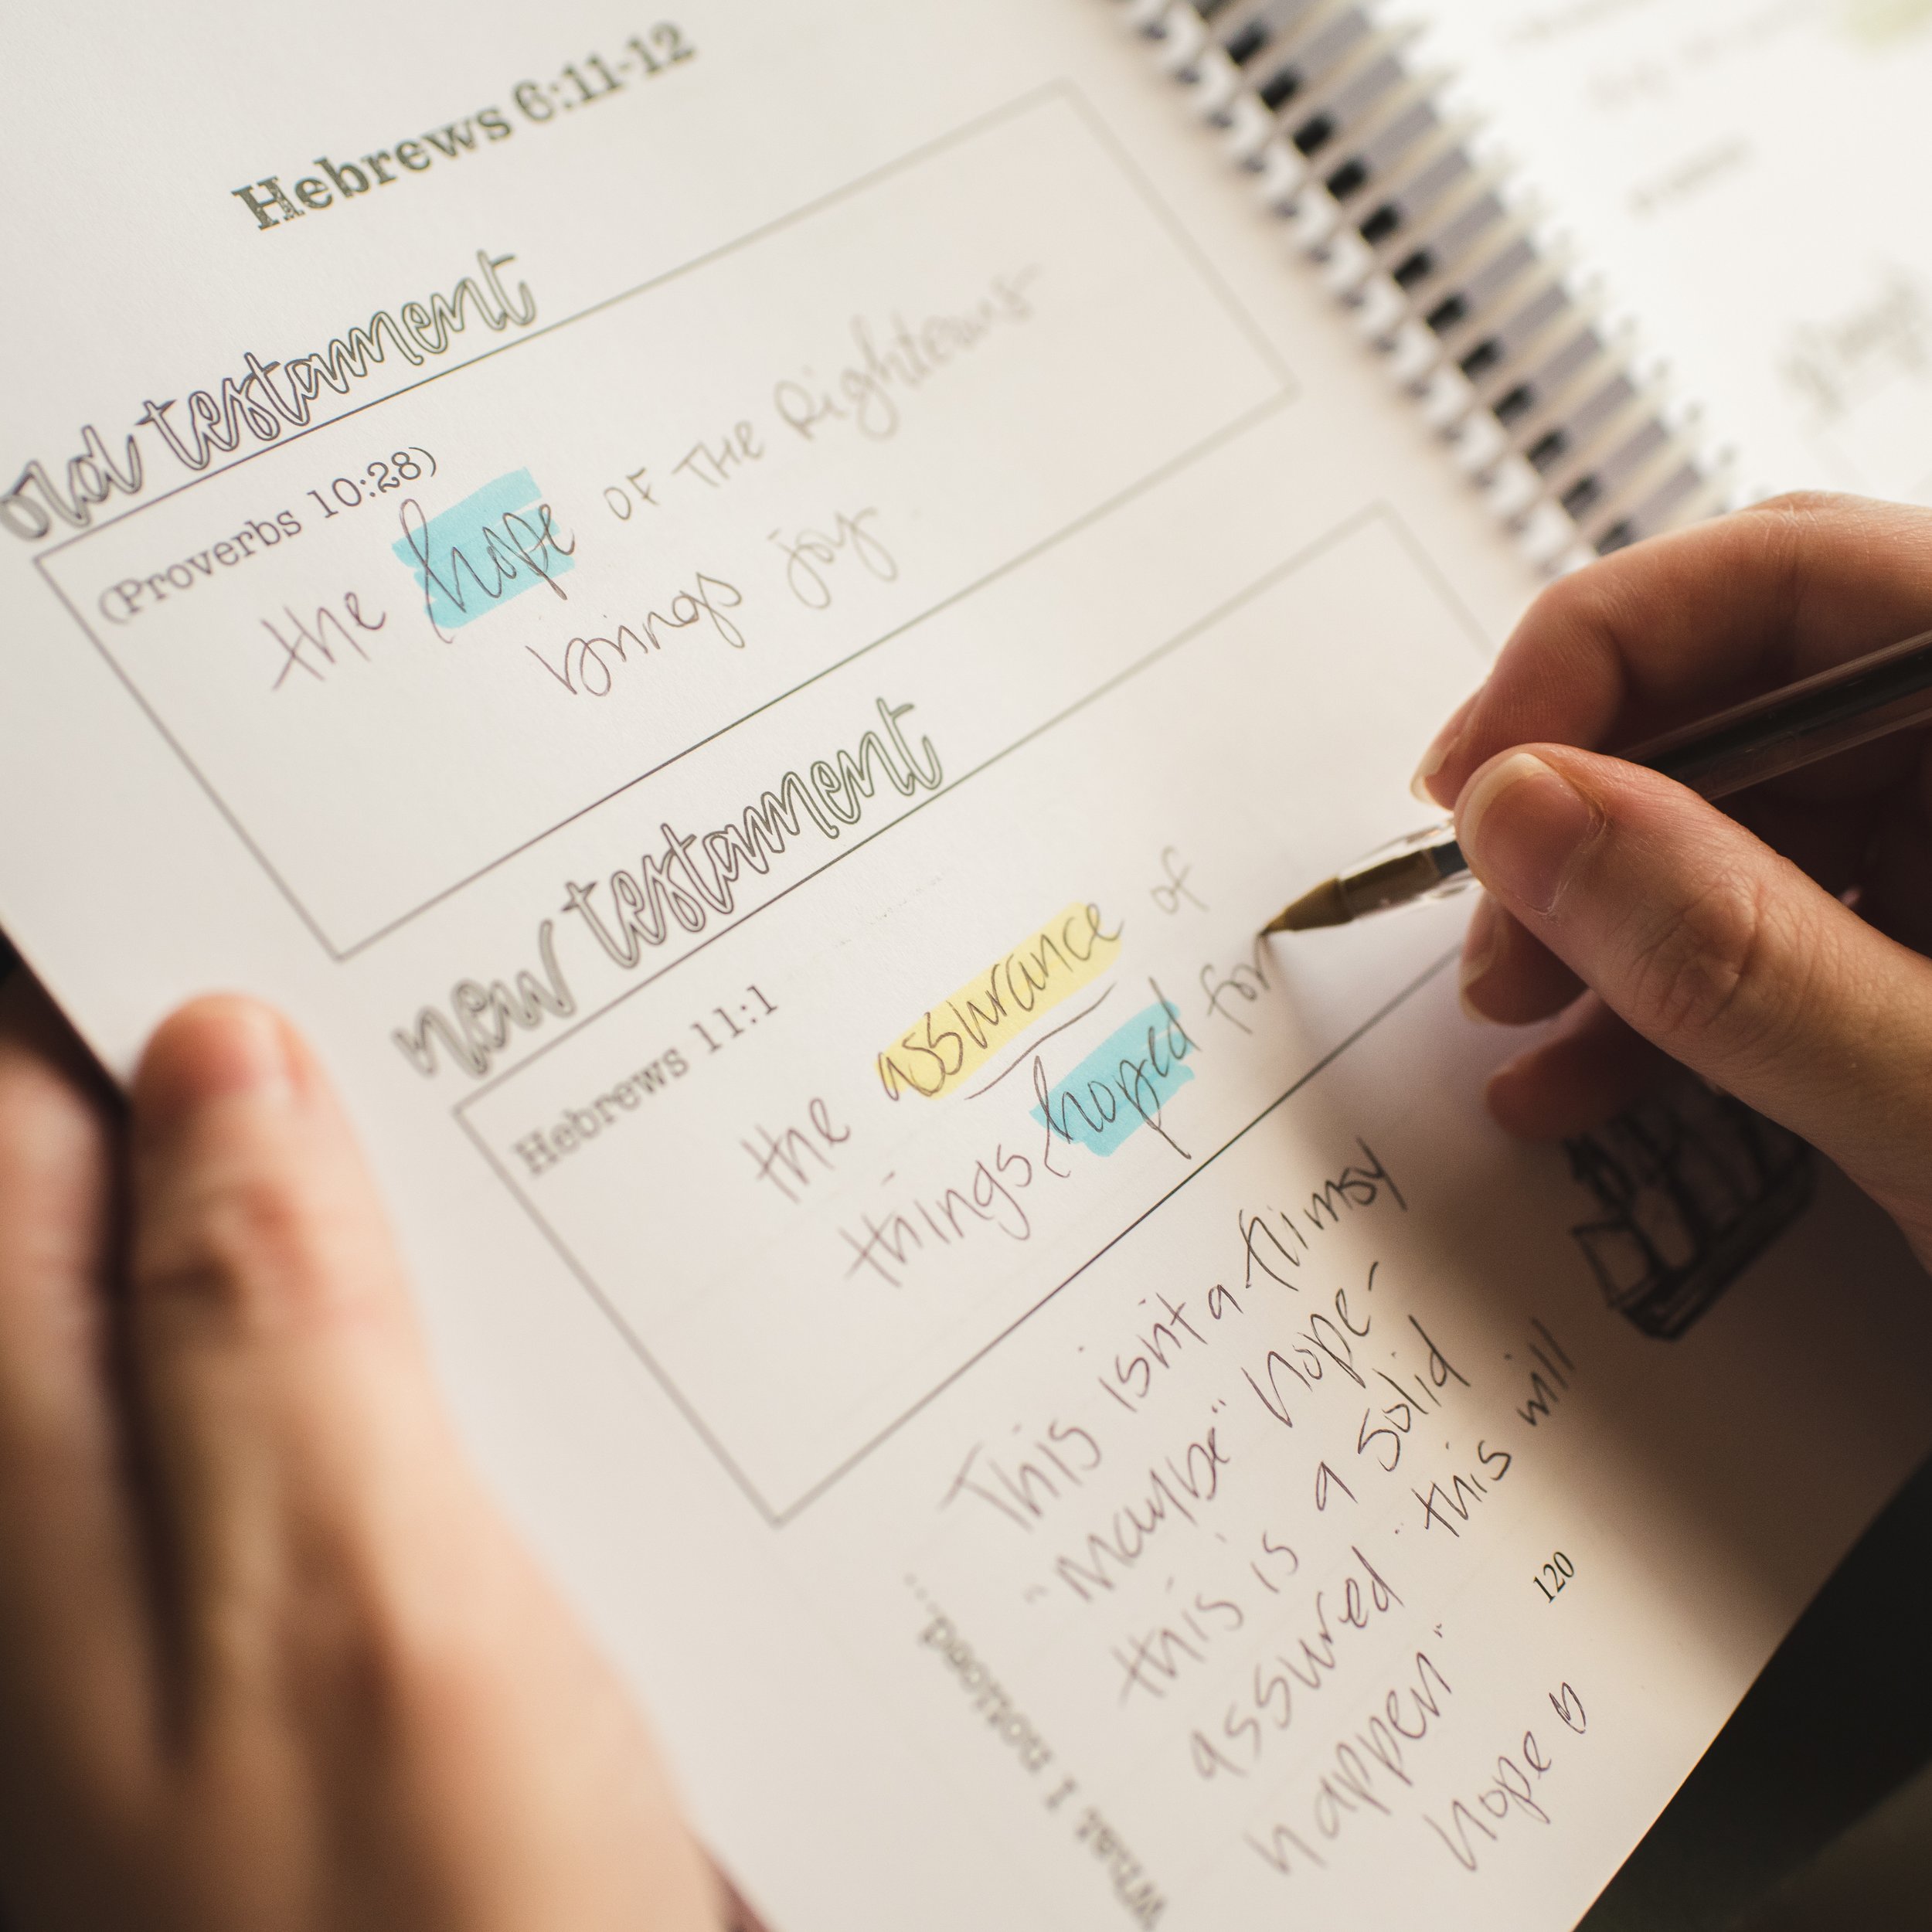 Hebrews 6:11-12
old testament
(Proverbs 10:28)
the hope OF THE Righteous
brings joy.
new testament
Hebrews 11:1
the assurance of
things hoped for
What I noticed...
This isn't a flimsy
"maybe" hope-
this is a solid
assured "this will
happen"
hope
120